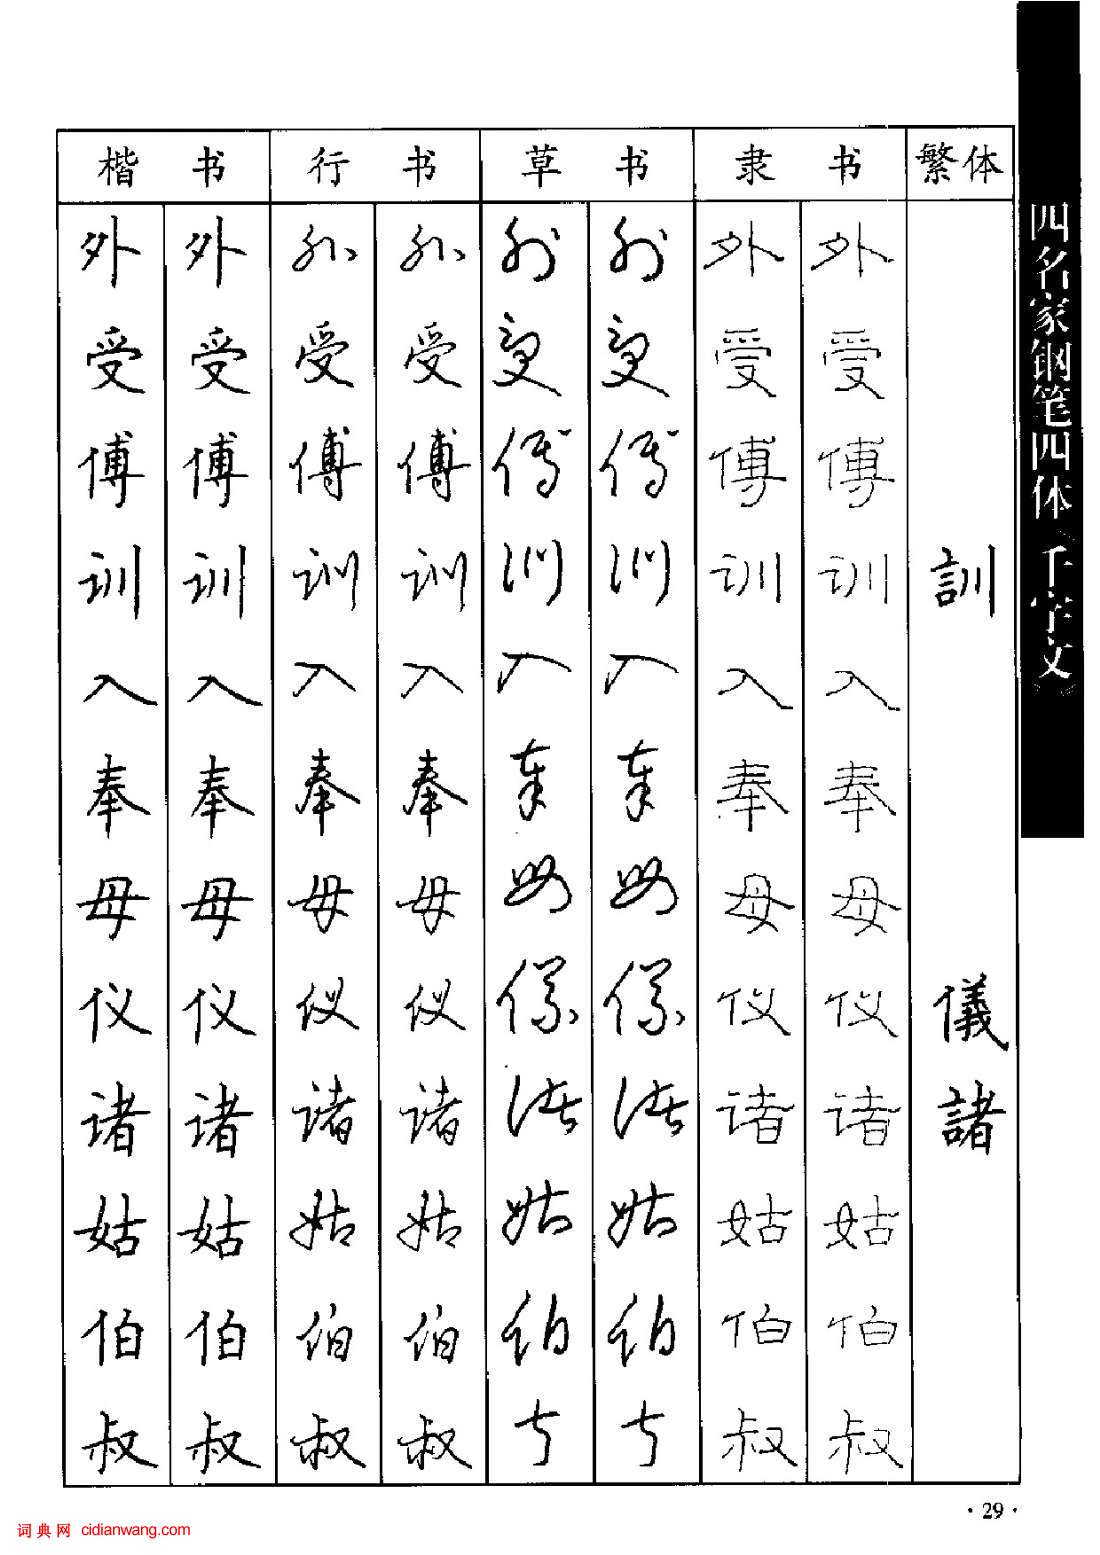 楷书 行书 草书 隶书 繁体
外 外 外 外 外 外 外 外
受 受 受 受 受 受 受 受
傅 傅 傅 傅 傅 傅 傅 傅
训 训 训 训 训 训 训 训 訓
入 入 入 入 入 入 入 入
奉 奉 奉 奉 奉 奉 奉 奉
母 母 母 母 母 母 母 母
仪 仪 仪 仪 仪 仪 仪 仪 儀
诸 诸 诸 诸 诸 诸 诸 诸 諸
姑 姑 姑 姑 姑 姑 姑 姑
伯 伯 伯 伯 伯 伯 伯 伯
叔 叔 叔 叔 叔 叔 叔 叔
四名家钢笔四体《千字文》
·29·
词典网 cidianwang.com